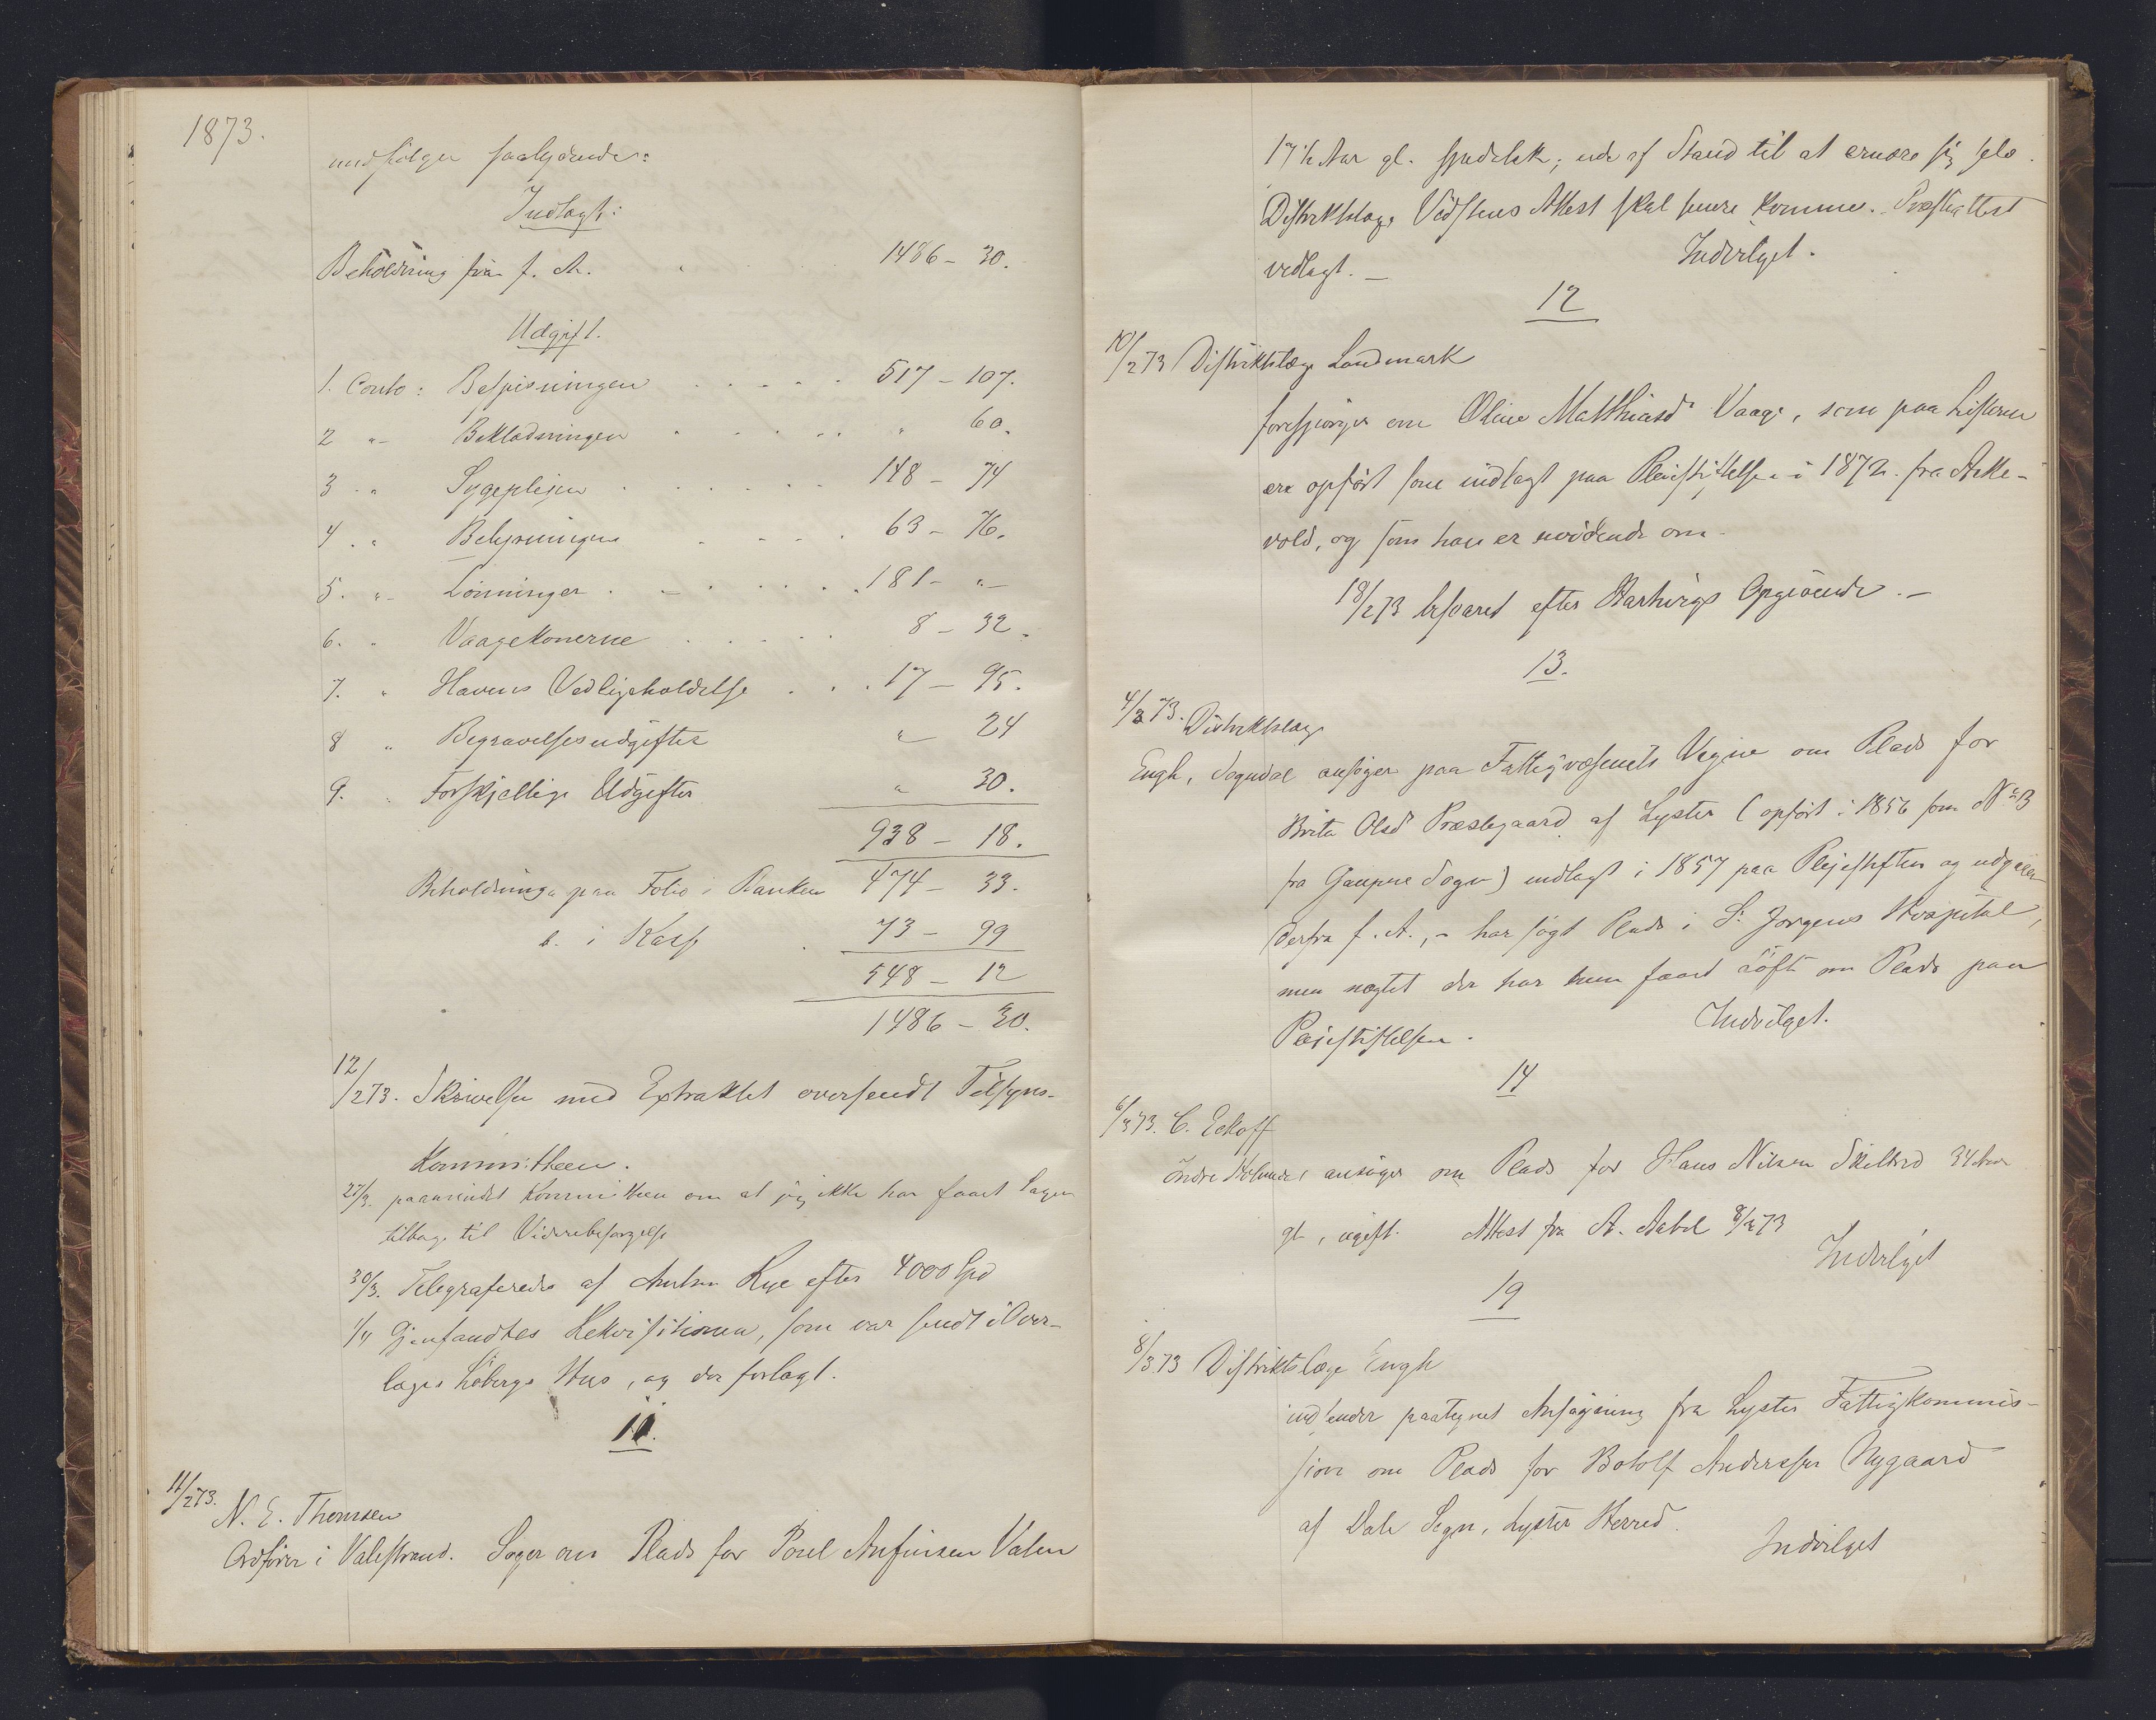 1873.
medfølger saalydende:
Indtægt:
Beholdning fra f. A. 1486 - 30.
Udgift.
1. Conto: Bespisningen 517 - 107.
2 "- Beklædningen " 60.
3 -" Sygeplejen 148 - 74
4 . " Belysningen 63 - 76.
5. "- Lønninger 181 - "-
6. " Vaagekonerne 8 - 32.
7. " Havens Vedligeholdelse 17 - 95.
8 " Begravelsesudgifter " 24
9. " Forskjellige Udgifter " 30.
938 - 18.
Beholdning a paa Folio i Banken 474 - 33.
b. i Kasse 73 - 99
548 - 12
1486 - 30.
12/273. Skrivelsen med Extraktet oversendt Tilsyns-
Kommitteen.
27/3. paamindet Kommitteen om at jeg ikke har faaet Sagen
tilbage til Viderebesørgelse
30/3. Telegraferede af Amtm Rye efter 4000 Spd
1/4 Gjenfandtes Rekvisitionen, som var sendt i Over-
læge Løbergs Hus, og der forlagt.
11.
11/273. N. E. Thomsen
Ordfører i Valestrand. Søger om Plads for Poul Anfinsen Valen
17½ Aar gl. spedalsk; ude af Stand til at ernære sig selv.
Distriktslæge Vedelers Attest skal senere komme. Præsteattest
vedlagt. - Indvilget.
12
10/273 Distriktslæge Landmark
forespørger om Oline Matthiasdr Vaage, som paa Listerne
er opført som indlagt paa Pleiestiftelsen i 1872 fra Aske-
vold, og som han er uvidende om.
18/273 besvaret efter Hartwigs Opgivende. -
13.
4/373. Distriktslæge
Engh, Sogndal ansøger paa Fattigvæsenets Vegne om Plads for
Brita Olsdr Præstegaard af Lyster (opført i 1856 som No 3
fra Gaupne Sogn) indlagt i 1857 paa Plejestiften og udgaaen
derfra f. A., - har søgt Plads i St. Jørgens Hospital,
men nægtet der har hun faaet Løfte om Plads paa
Plejestiftelsen. Indvilget.
14
6/373. C. Eckoff
Indre Holmedal ansøger om Plads for Hans Nilsen Skilbred 34 Aar
gl, ugift. Attest fra A. Aabel 8/273
Indvilget
19
8/373 Distriktslæge Engh
indsender paategnet Ansøgning fra Lyster Fattigkommis-
sion om Plads for Botolf Anderssen Nygaard
af Dale Sogn, Lyster Herred.
Indvilget